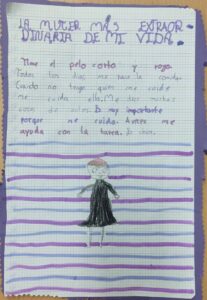 LA MUJER MÁS EXTRAOR
DINARIA DE MI VIDA.
Tiene el pelo corto y rojo.
Todos los días me hace la comida.
Cuando no tengo quien me cuide
me cuida ella. Me da muchas
de Es muy importante
porque me cuida. Antes me
ayuda con la tarea.